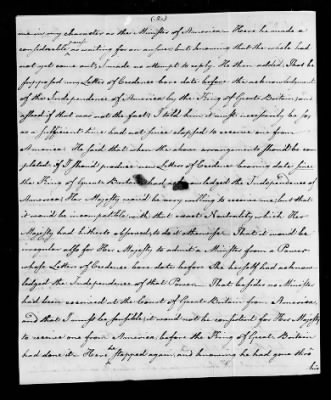 (2.)
me in my character as the Minister of America. Here he made a
pause
considerable as waiting for an answer, but knowing that the whole had
not yet come out, I made no attempt to reply. He then added, That he
supposed my Letter of Credence bore date before the acknowledgment
of the Independence of America by the King of Great Britain, and
asked if that was not the fact; I told him it must necessarily be so,
as a sufficient time had not since elapsed to receive one from
America. He said that when the above arrangements should be com
pleated, if I should produce new Letters of Credence bearing date since
the King of Great Britain had acknowledged the Independence of
America; Her Majesty would be very willing to receive me; but that
it wou'd be incompatible with that exact Neutrality which Her
Majesty had hitherto observed, to do it otherwise. That it wou'd be
irregular also for Her Majesty to admit a Minister from a Power
whose Letter of Credence bore date before She herself had acknow
ledged the Independence of that Power. That besides no Minister
had been received at the Court of Great Britain from America,
and that I must be sensible, it wou'd not be consistent for Her Majesty
to receive one from America, before the King of Great Britain
had done it. Here he stopped again, and knowing he had gone thro'
his